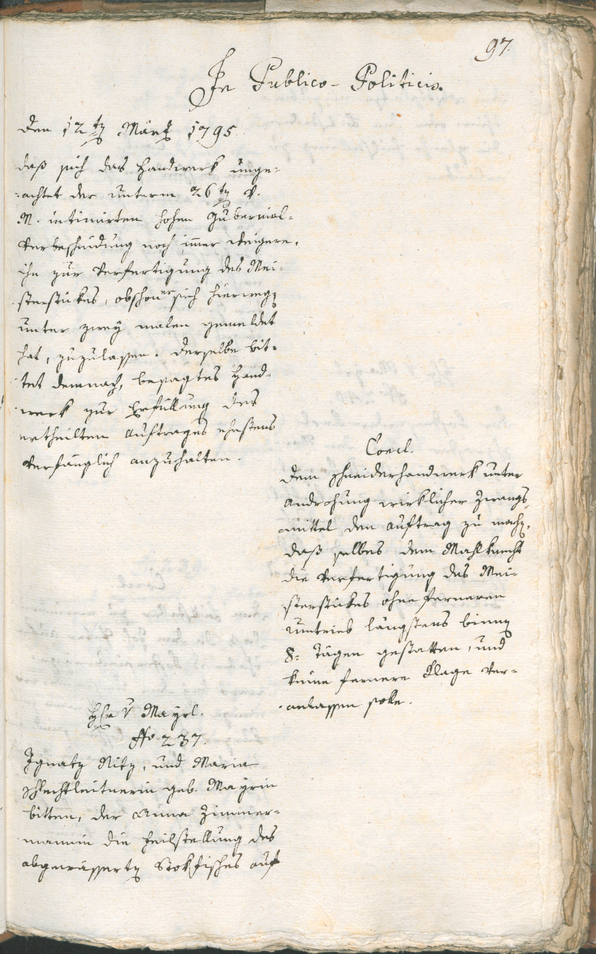 97.
In Publico-Politicis.
den 12tn März 1795.
daß sich das Handwerk unge-
achtet der unterm 26tn v.
M. intimirten hohen Gubernial-
Verbscheidung noch immer weigere,
ihn zur Verfertigung des Mei-
sterstükes, obschon er sich hierwegn
unter zwey malen gemeldet
hat, zuzulassen. Derselbe bit-
tet demnach, besagtes Hand-
werk zur Erfüllung des
ertheilten Auftrages ehestens
verfänglich anzuhalten.
Concl.
dem Schneiderhandwerk unter
Androhung wirklicher Zwangs-
mittel den Auftrag zu machn,
daß selbes dem Maklknecht
die Verfertigung des Mei-
sterstükes ohne ferneren
Umtrieb längstens binnen
8: Tägen gestatten, und
keine fernere Klage ver-
anlassen solle.
Hr v Mayrl.
No 237.
Ignatz Nitz, und Maria
Schlechtleitnerin geb. Mayrin
bitten, der Anna Zimmer-
mannin die Feilstellung des
abgewässertn Stokfisches auf